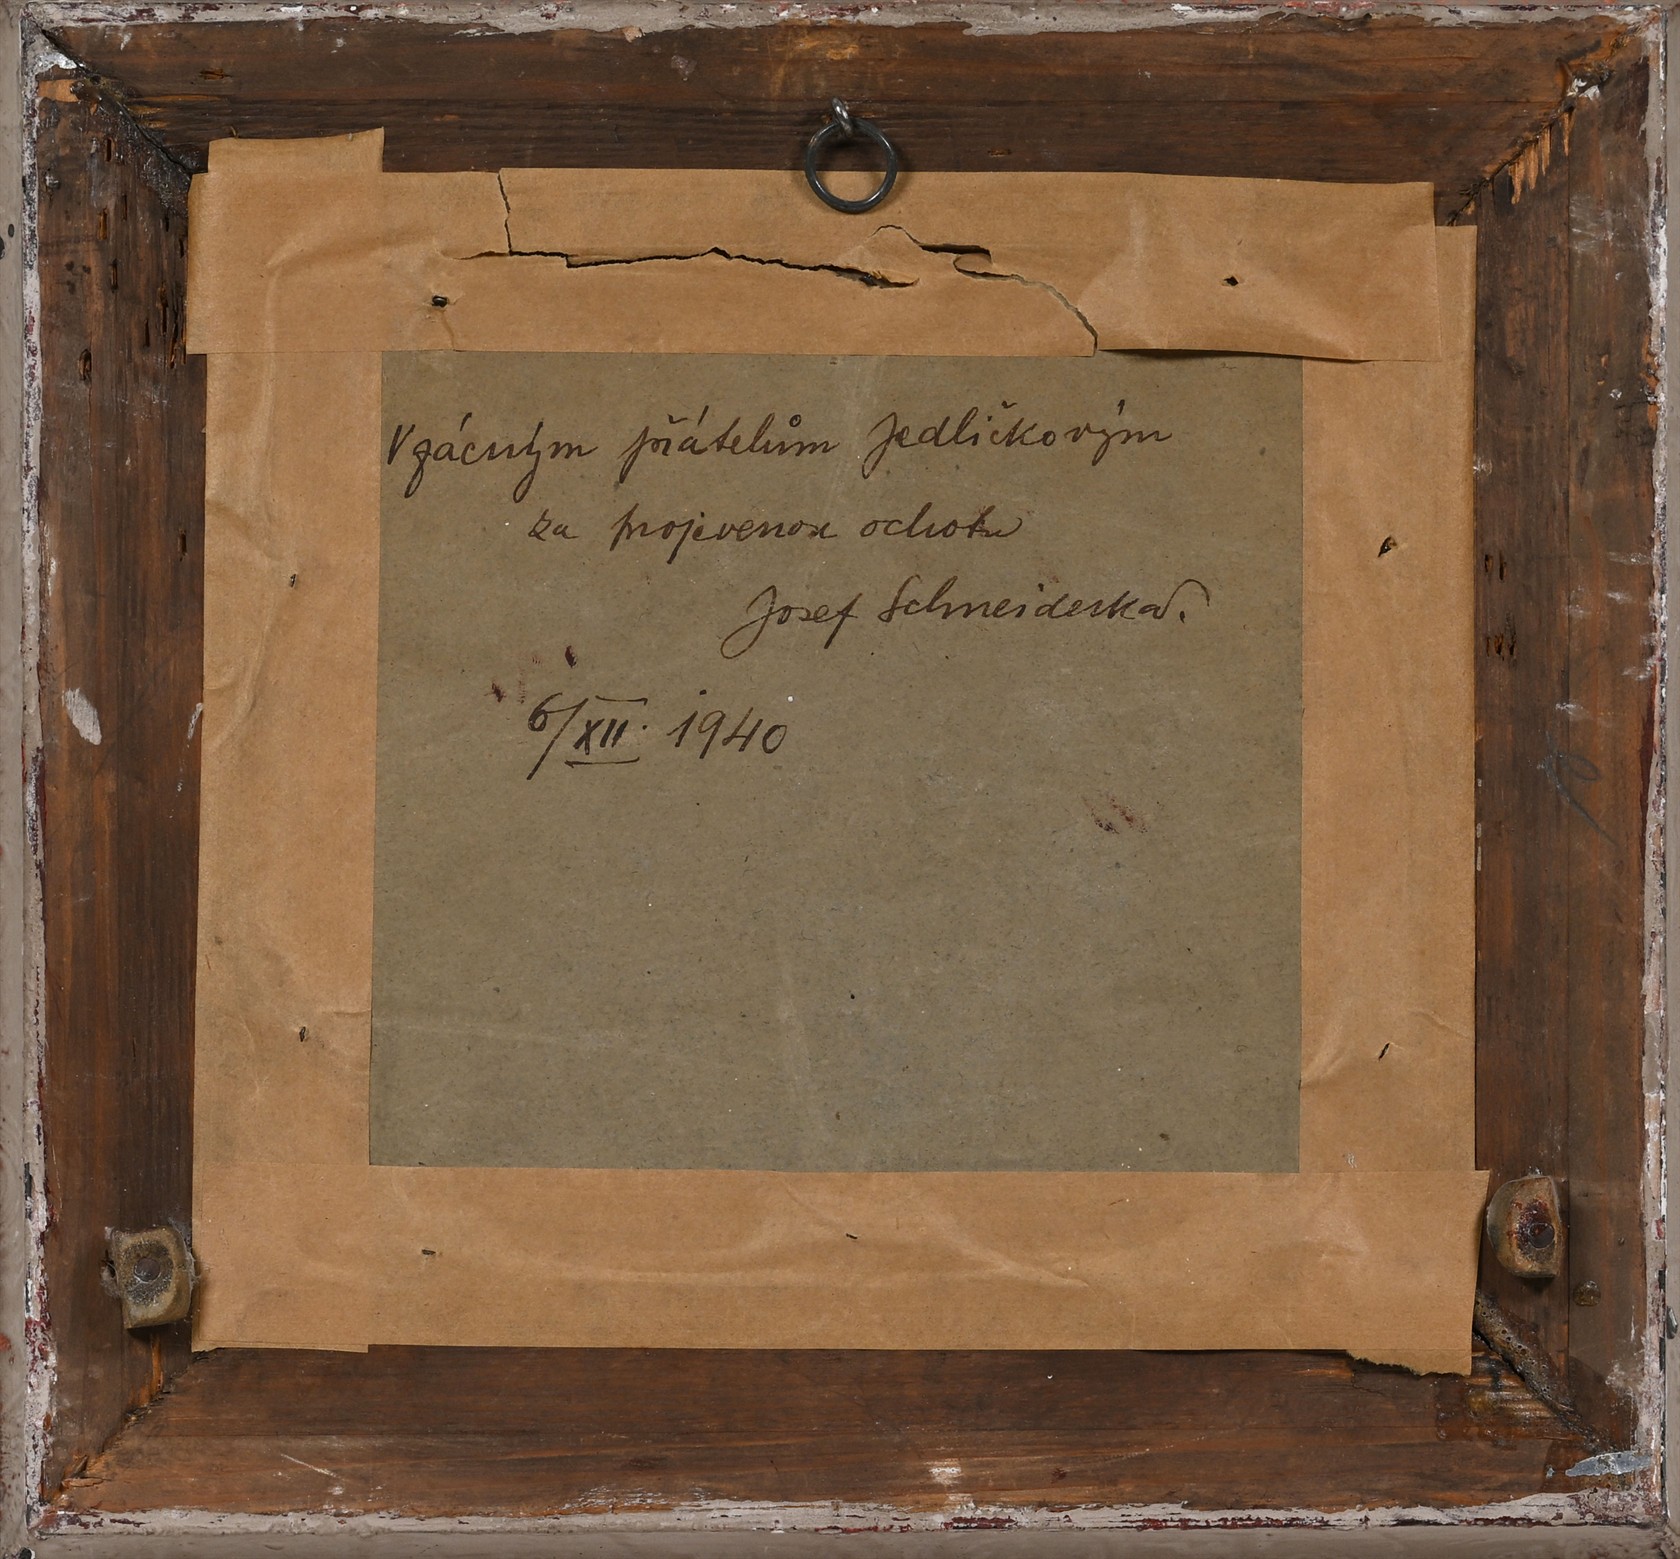 Vzácným přátelům Jedličkovým
za projevenou ochotu
Josef Schneiderka.
6/XII. 1940